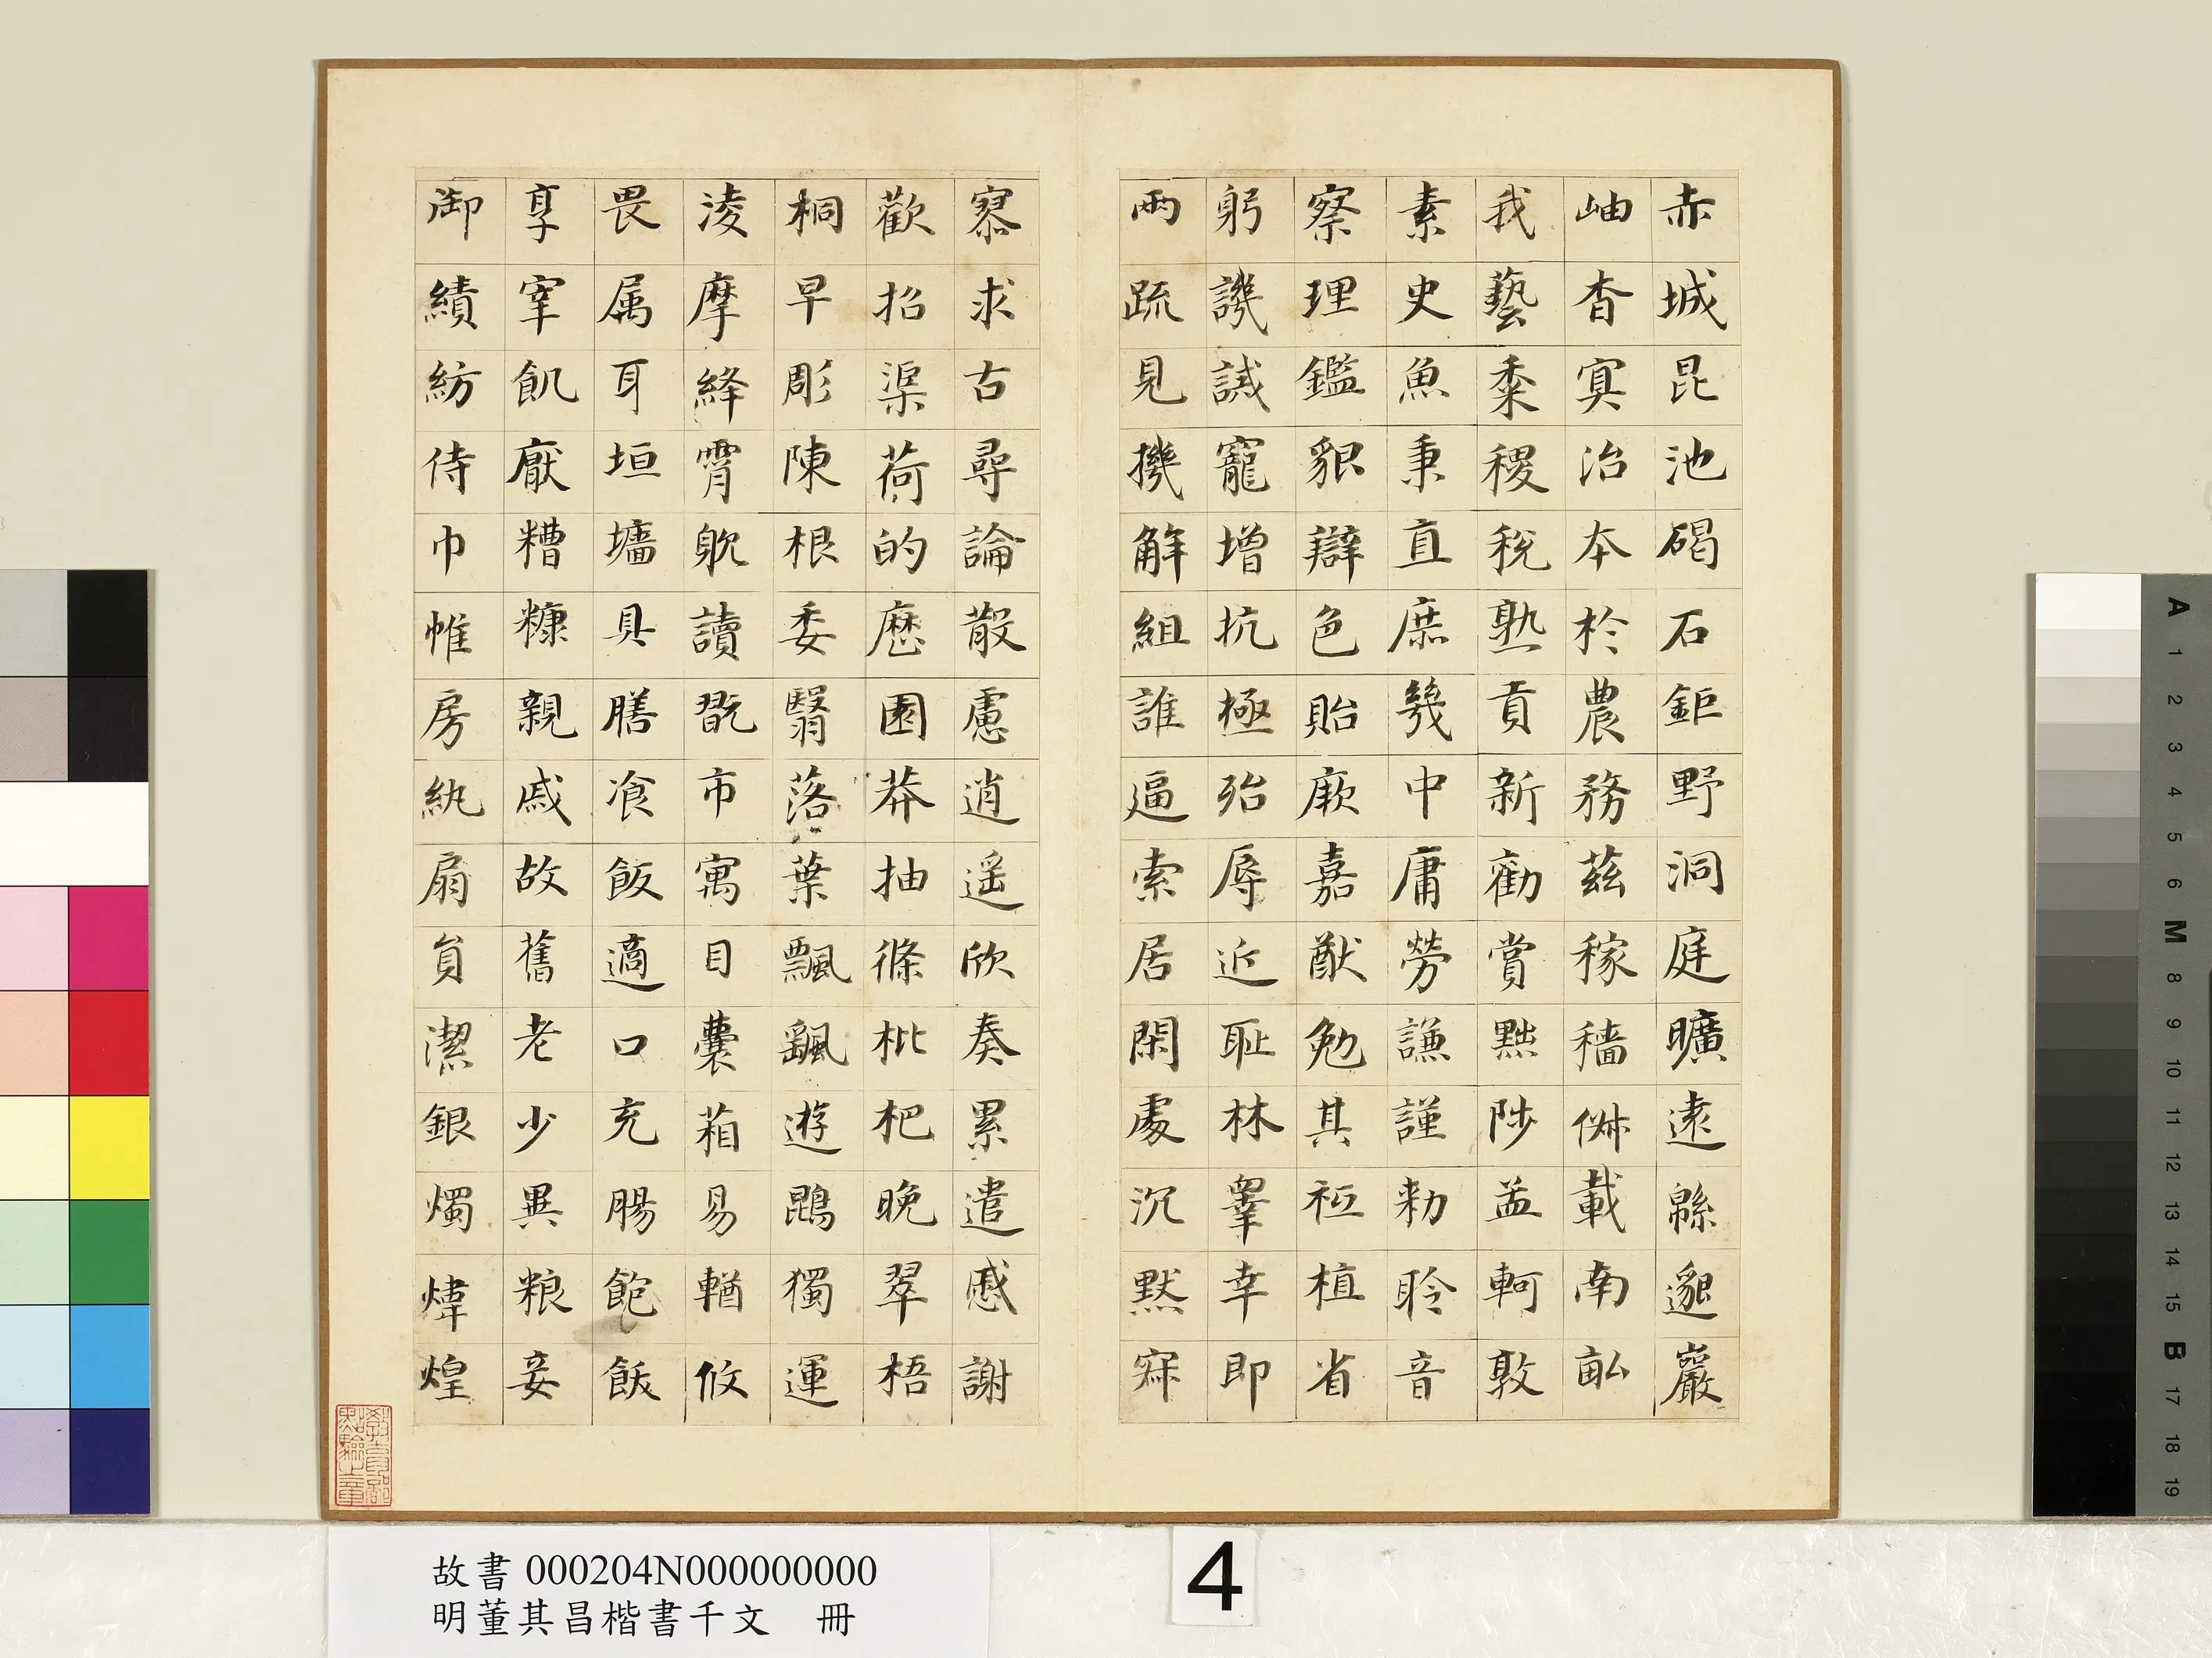 赤城昆池碣石鉅野洞庭曠遠緜邈巖
岫杳冥治本於農務茲稼穡俶載南畝
我藝黍稷稅熟貢新勸賞黜陟孟軻敦
素史魚秉直庶幾中庸勞謙謹勑聆音
察理鑑貌辯色貽厥嘉猷勉其祗植省
躬譏誡寵增抗極殆辱近恥林睪幸即
兩疏見機解組誰逼索居閑處沉默寂
寥求古尋論散慮逍遙欣奏累遣慼謝
歡招渠荷的歷園莽抽條枇杷晚翠梧
桐早彫陳根委翳落葉飄颻遊鵾獨運
淩摩絳霄耽讀翫市寓目囊葙易輶攸
畏属耳垣墻具膳飡飯適口充腸飽飫
享宰飢厭糟糠親戚故舊老少異粮妾
御績紡侍巾帷房紈扇員潔銀燭煒煌
教育部點驗之章
故書000204N000000000
明董其昌楷書千文 冊
4
A
1
2
3
4
5
6
M
8
9
10
11
12
13
14
15
B
17
18
19